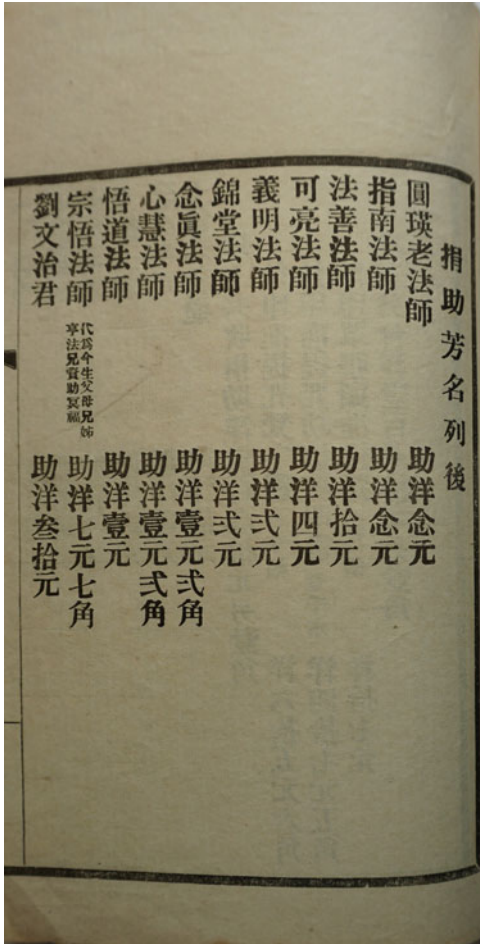 捐助芳名列後
圓瑛老法師 助洋念元
指南法師 助洋念元
法善法師 助洋拾元
可亮法師 助洋四元
義明法師 助洋弍元
錦堂法師 助洋弍元
念眞法師 助洋壹元弍角
心慧法師 助洋壹元弍角
悟道法師 助洋壹元
宗悟法師 代爲今生父母兄姊 寧法兄資助冥福 助洋七元七角
劉文治君 助洋叁拾元